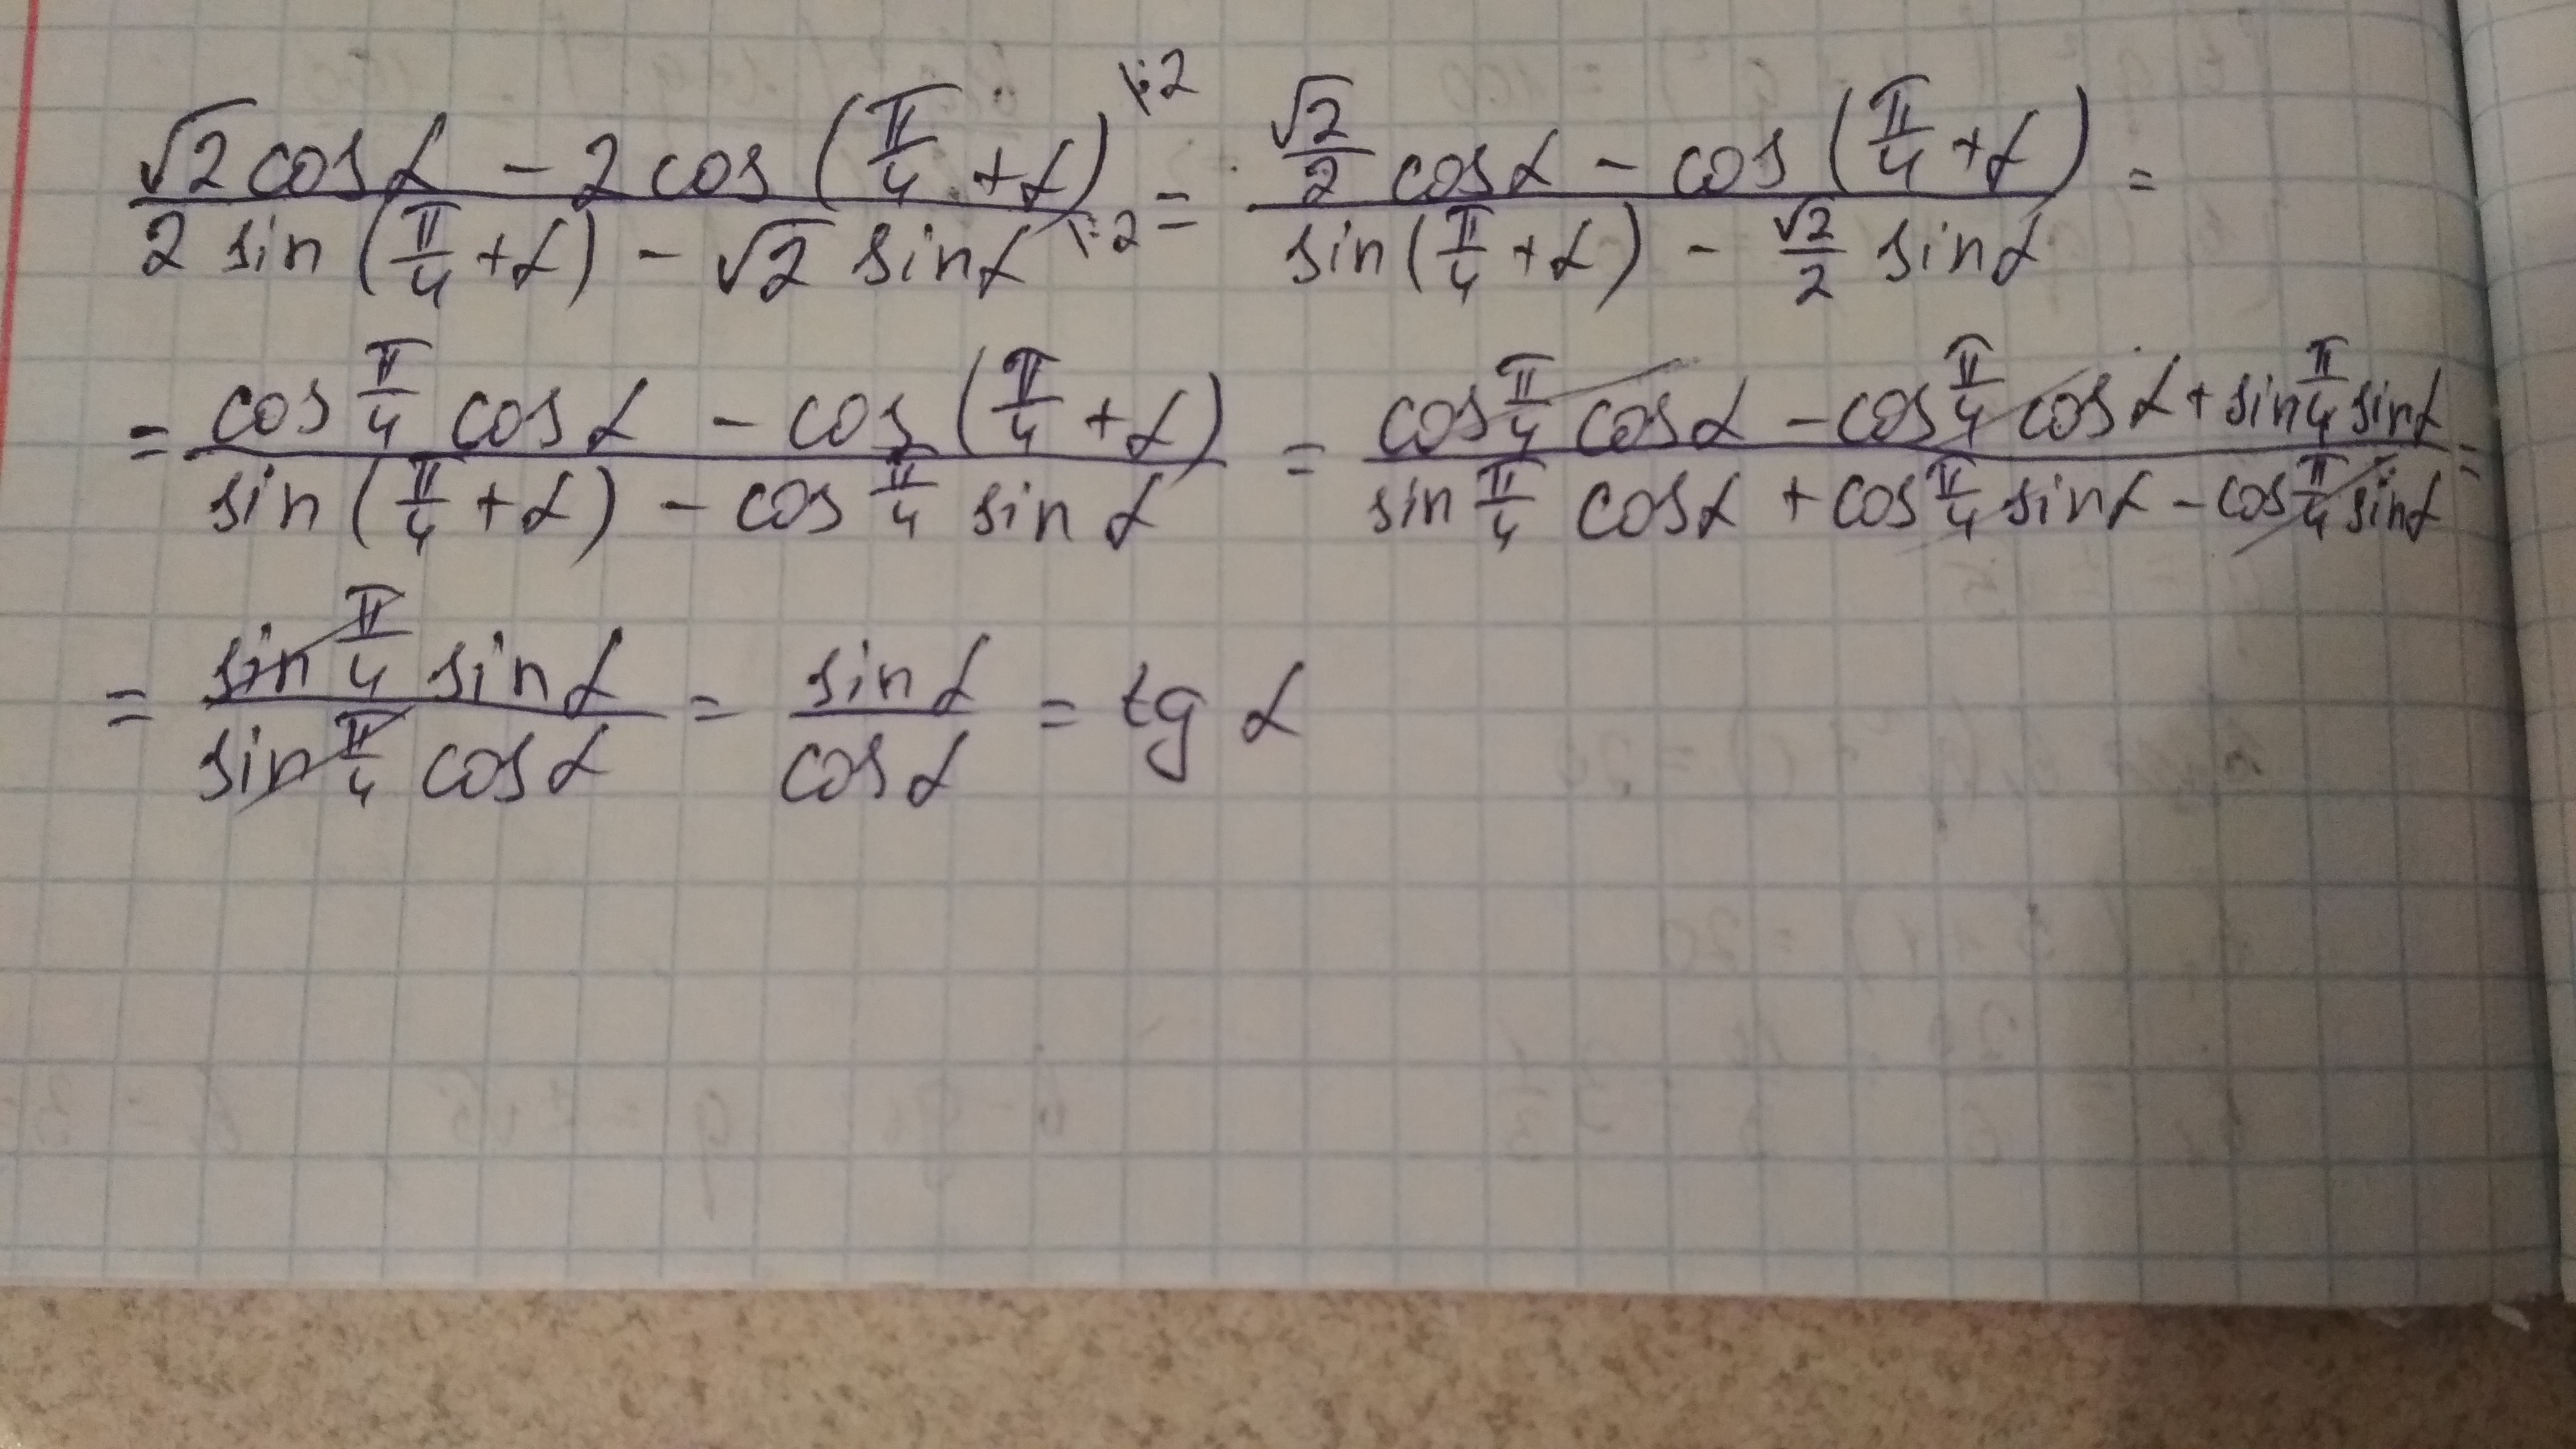 (√2 cos α - 2 cos (π/4 + α)) / (2 sin (π/4 + α) - √2 sin α) |:2 |:2 = (√2/2 cos α - cos (π/4 + α)) / (sin (π/4 + α) - √2/2 sin α) =
= (cos π/4 cos α - cos (π/4 + α)) / (sin (π/4 + α) - cos π/4 sin α) = (cos π/4 cos α - cos π/4 cos α + sin π/4 sin α) / (sin π/4 cos α + cos π/4 sin α - cos π/4 sin α) =
= (sin π/4 sin α) / (sin π/4 cos α) = sin α / cos α = tg α